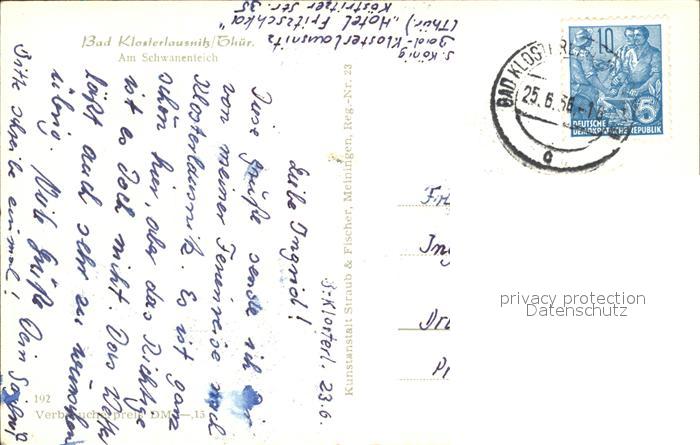 S. König
Bad-Klosterlausnitz
(Thür.) „Hotel Fritzschka"
Köstritzer Str. 35
Bad Klosterlausnitz/Thür.
Am Schwanenteich
S-Klosterl. 23.6.
Liebe Ingrid!
Gute Grüße sende ich Dir
von meiner Ferienreise nach
Klosterlausnitz. Es ist ganz
schön hier, aber das Richtige
ist es doch nicht. Das Wetter
läßt auch sehr zu wünschen
übrig. Viele Grüße
Bitte schreibe einmal! Dein
192
Verbraucherpreis DM -,15
Kunstanstalt Straub & Fischer, Meiningen, Reg.-Nr. 23
BAD KLOSTER
25.6.56.-1
10
5
DEUTSCHE
DEMOKRATISCHE REPUBLIK
Fr
Ing
Dr
privacy protection
Datenschutz